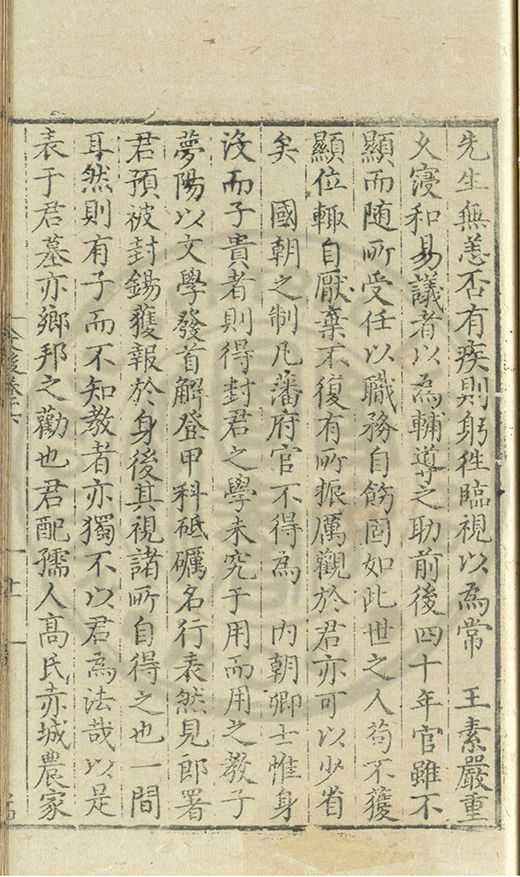 先生無恙否有疾則躬徃臨視以為常　王素嚴重
乂寖和易議者以為輔導之助前後四十年官雖不
顯而随所受任以職務自飭固如此世之人苟不獲
顯位輙自厭棄不復有所振厲觀於君亦可以少省
矣　國朝之制凡藩府官不得為　内朝卿士惟身
沒而子貴者則得封君之學未究于用而用之教子
夢陽以文學發首解登甲科砥礪名行表然見郎署
君預被封錫獲報於身後其視諸所自得之也一間
耳然則有子而不知教者亦獨不以君為法哉以是
表于君墓亦鄉邦之勸也君配孺人高氏赤城農家